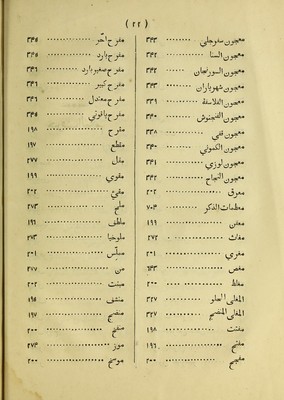 ( ٢٢ )
معجون سفرجلي ٣٤٣
معجون السنا ٣٤٢
معجون السورنجان ٣٤٢
معجون شهرياران ٣٤٣
معجون الفلاسفة ٣٣٩
معجون الفنجنوش ٣٤٠
معجون قفي ٣٣٨
معجون الكموني ٣٤٠
معجون لوزي ٣٤١
معجون النجاح ٣٤٢
معرق ٢٠٢
معظمات الذكر ٧٠٣
معفن ١٩٩
مغاث ٢٧٢
مغري ٢٠١
مغص ٦٤٣
مغلظ ٢٠٠
المغلى الحلو ٣٢٧
المغلى المنضج ٣٢٧
مفتت ١٩٨
مفتح ١٩٦
مفجج ٢٠٠
مفرح آخر ٣٤٥
مفرح بارد ٣٤٥
مفرح صغير بارد ٣٤٦
مفرح كبير ٣٤٦
مفرح معتدل ٣٤٦
مفرح ياقوتي ٣٤٥
مقرح ١٩٨
مقطع ١٩٧
مقل ٢٧٧
مقوي ١٩٩
مقيّ ٢٠٢
ملح ٢٧٣
ملطف ١٩٦
ملوخيا ٢٧٣
مملّس ٢٠١
من ٢٧٧
منبت ٢٠٢
منشف ١٩٥
منضج ١٩٧
منفخ ٢٠٠
موز ٢٧٤
موسخ ٢٠٠